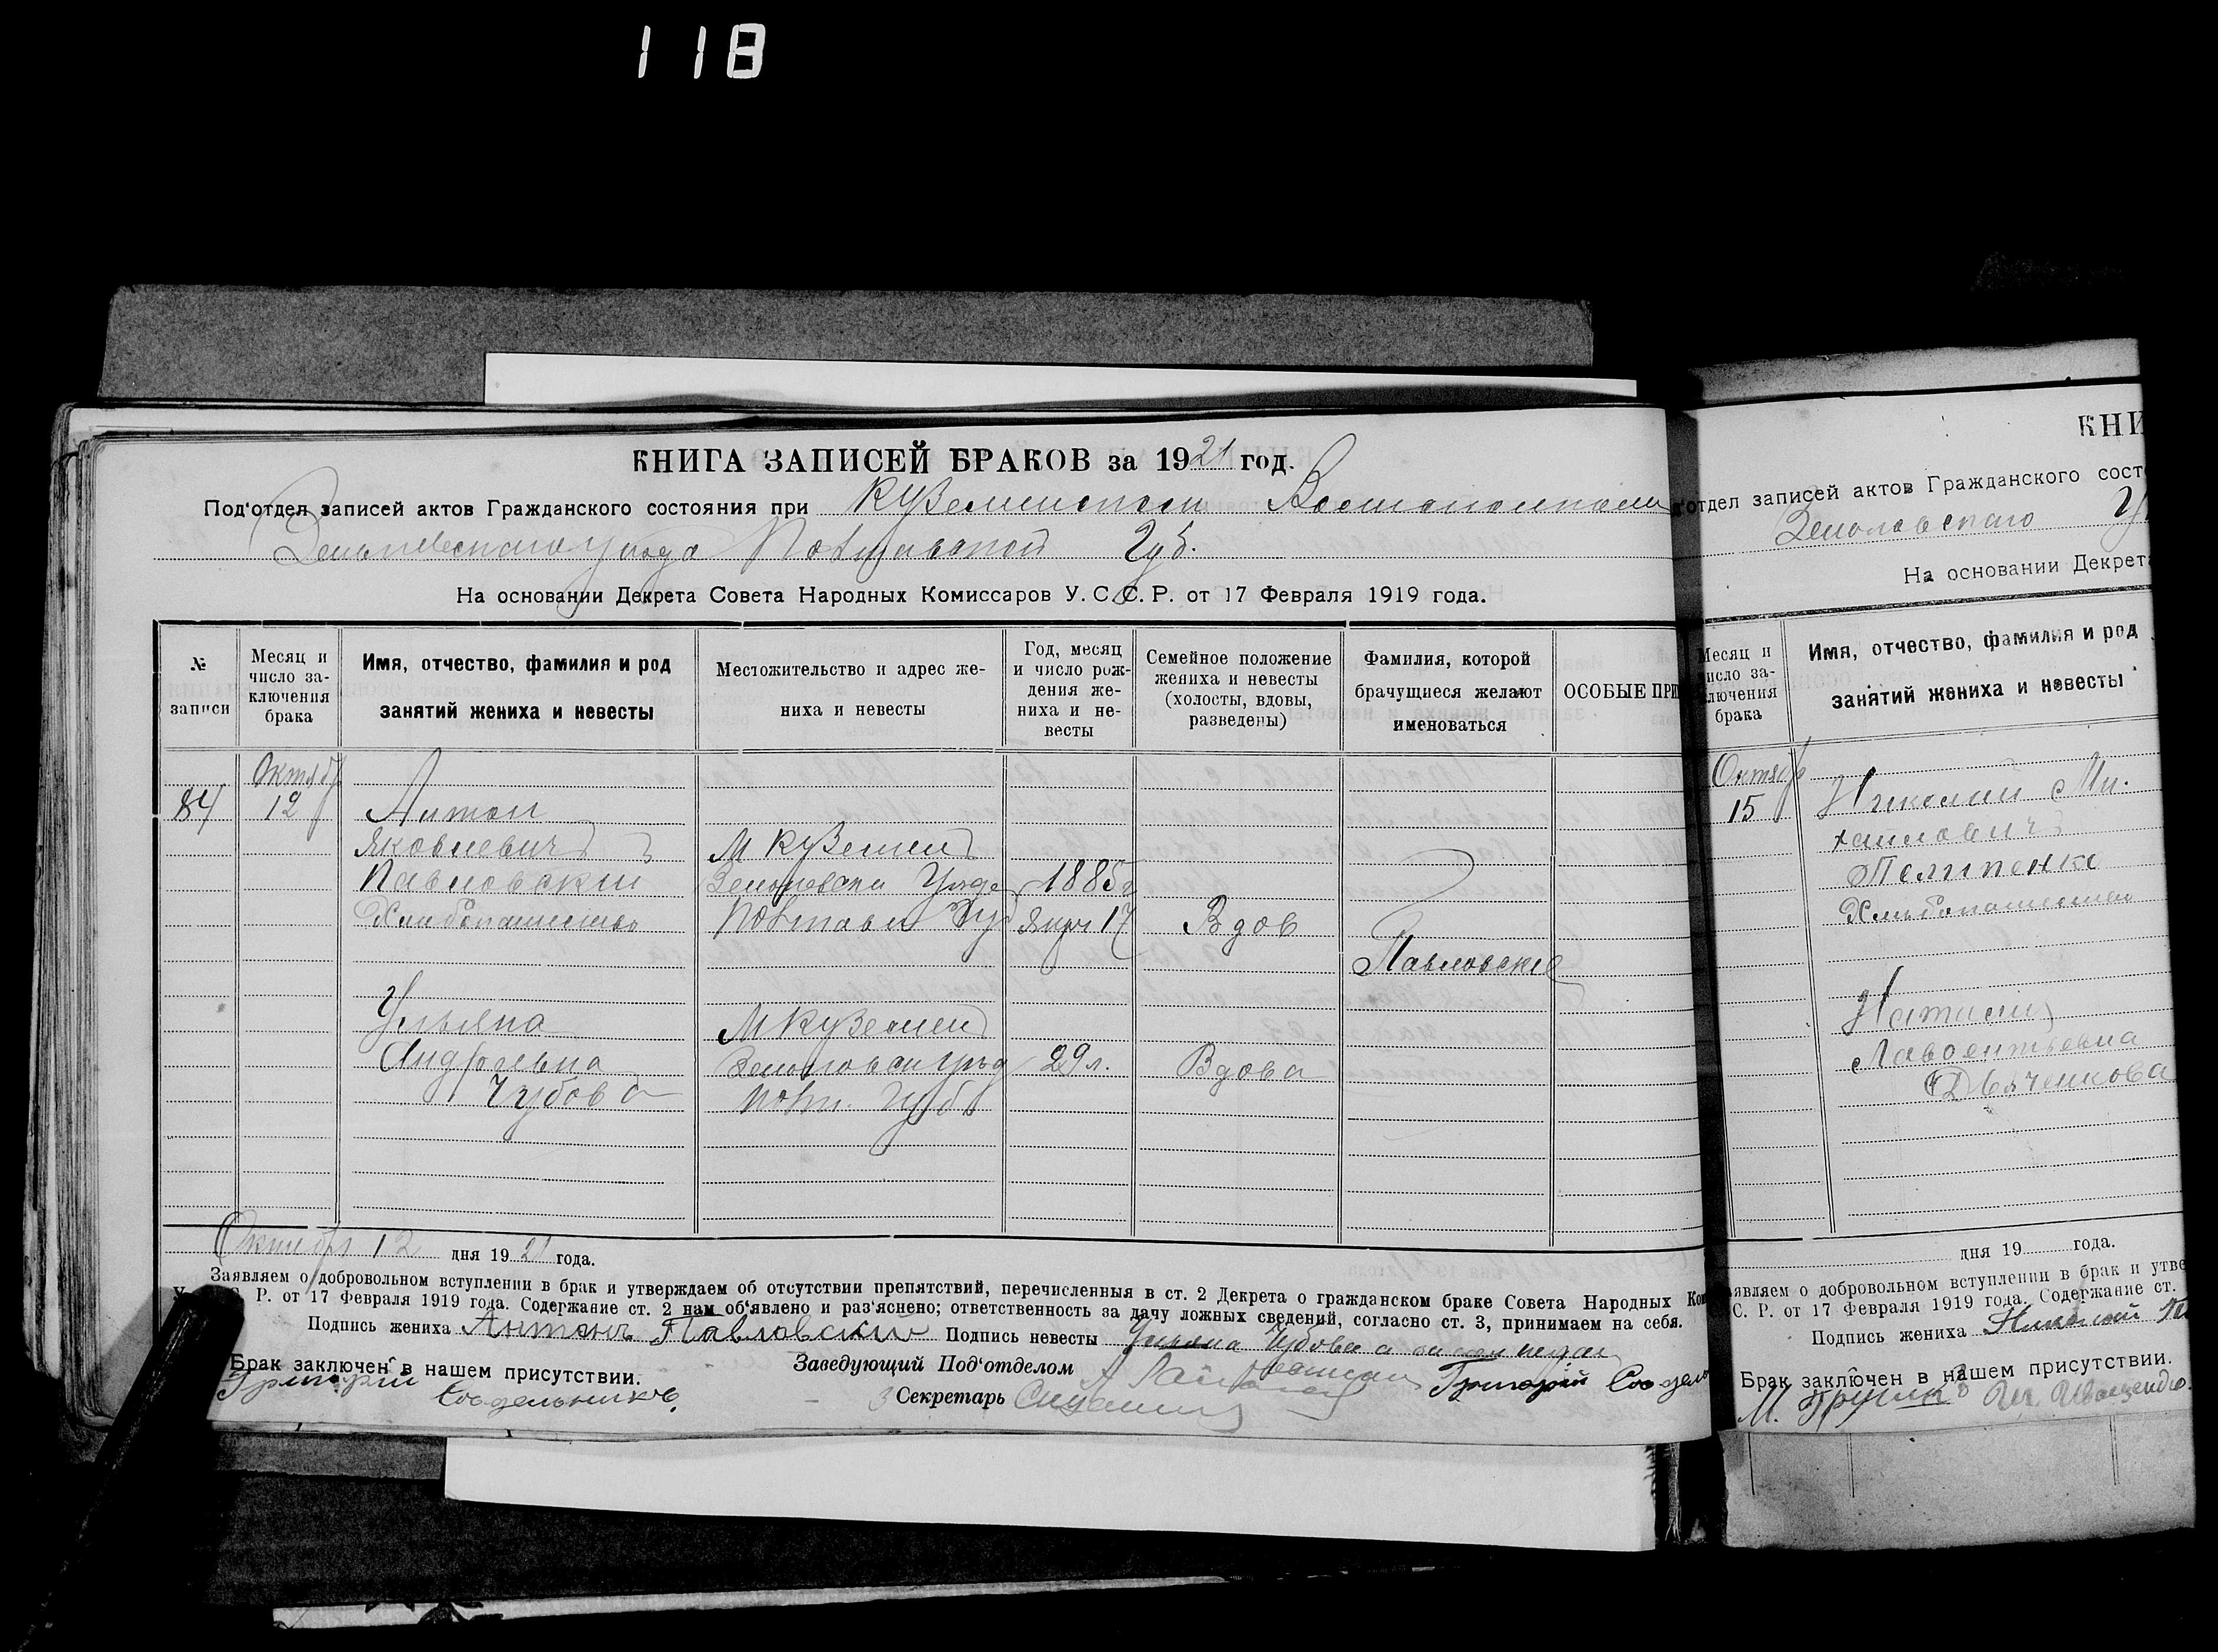 118
КНИГА ЗАПИСЕЙ БРАКОВ за 1921 год.
Под'отдел записей актов Гражданского состояния при
Полтавской Губ.
На основании Декрета Совета Народных Комиссаров У. С. С. Р. от 17 Февраля 1919 года.
№ записи
Месяц и число за-
ключения
брака
Имя, отчество, фамилия и род
занятий жениха и невесты
Местожительство и адрес же-
ниха и невесты
Год, месяц
и число рож-
дения же-
ниха и не-
весты
Семейное положение
жениха и невесты
(холосты, вдовы,
разведены)
Фамилия, которой
брачущиеся желают
именоваться
ОСОБЫЕ ПРИ
Октябр
84 12 Антон
Яковлевич М Куземен
Павловский 1885
Хлибопашество 17 Вдов
Павловские
Ульяна М Куземен
Андреевна 29 л. Вдова
Чубова Полт. Губ
Октября 12 дня 1921 года.
Заявляем о добровольном вступлении в брак и утверждаем об отсутствии препятствий, перечисленных в ст. 2 Декрета о гражданском браке Совета Народных Ко
Р. от 17 Февраля 1919 года. Содержание ст. 2 нам об'явлено и раз'яснено; ответственность за дачу ложных сведений, согласно ст. 3, принимаем на себя.
Подпись жениха Антонъ Павловский Подпись невесты Ульяна Чубова а
Брак заключен в нашем присутствии. Заведующий Под'отделом
Григорий Секретарь Григорий
КНИ
отдел записей актов Гражданского сост
На основании Декрета
Месяц и
число за-
ключения
брака
Имя, отчество, фамилия и род
занятий жениха и невесты
Октябр
15 Николай Ми-
хайлович
Хлибопашество
Наталия
Лаврентьевна
Дьяченкова
дня 19 года.
являем о добровольном вступлении в брак и утве
С. Р. от 17 Февраля 1919 года. Содержание ст.
Подпись жениха Николай
Брак заключен в нашем присутствии.